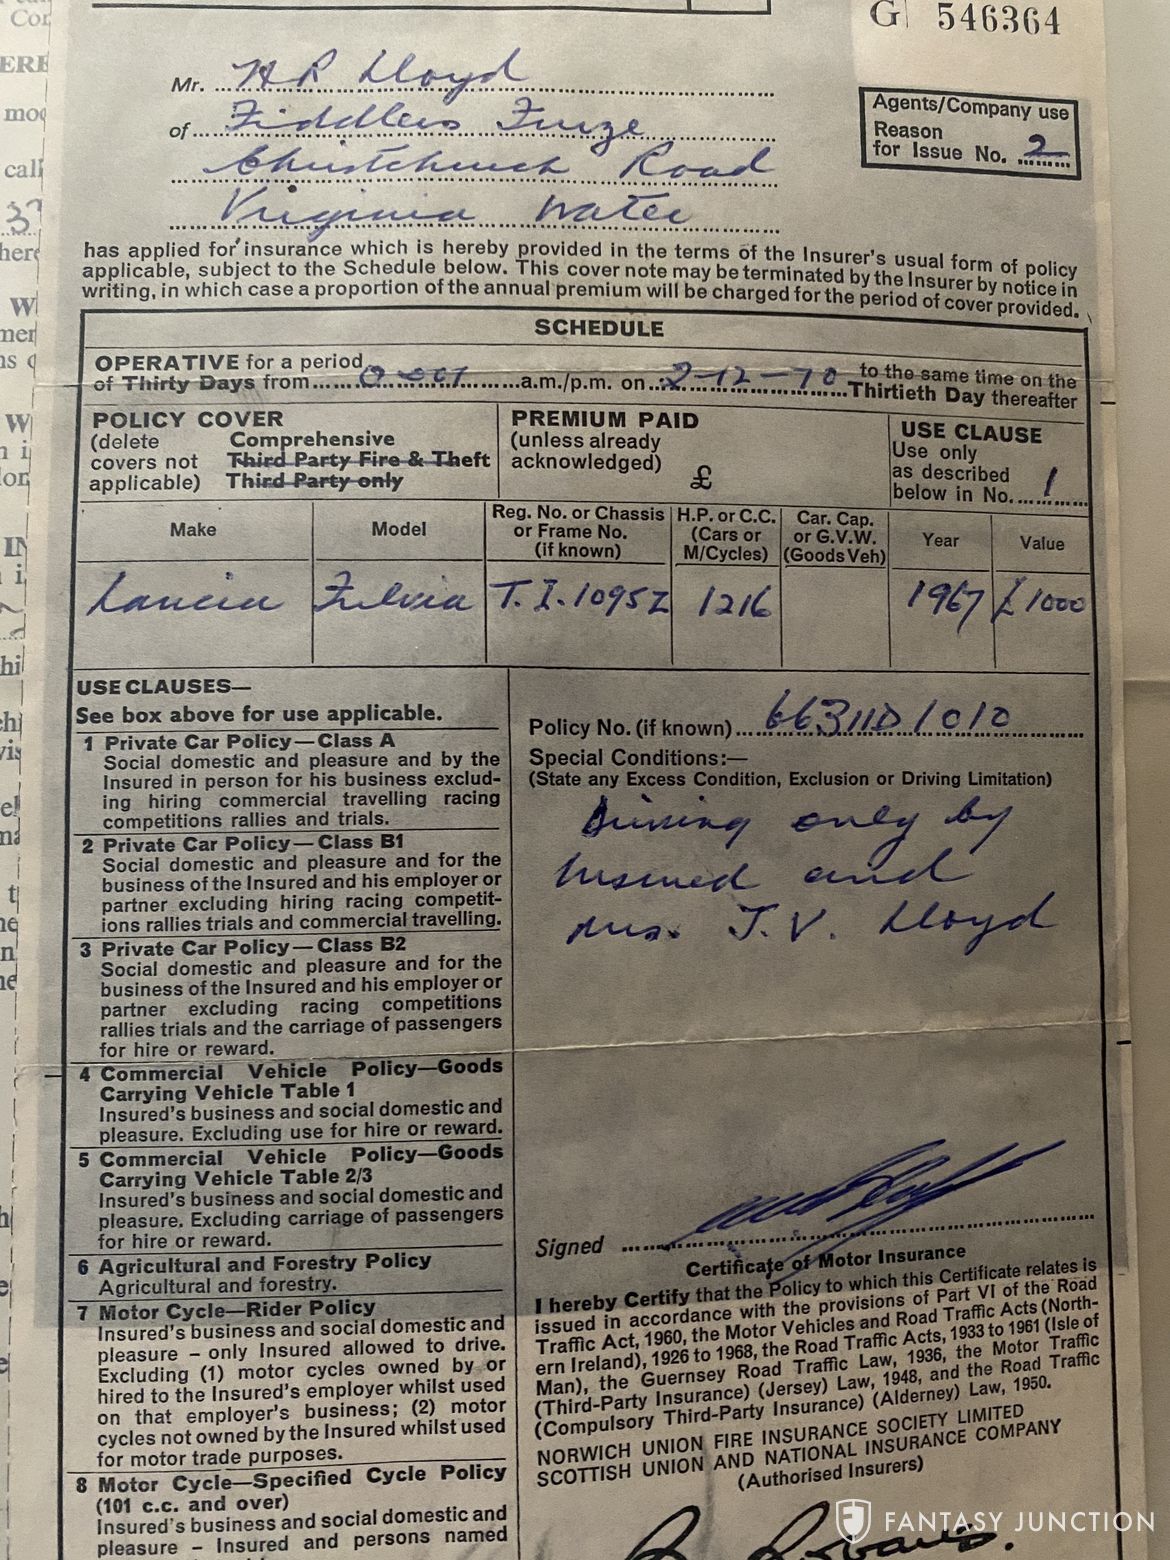 G 546364
Mr. H R Lloyd
of Fiddlers Furze
Christchurch Road
Virginia Water
Agents/Company use
Reason
for Issue No. 2
has applied for insurance which is hereby provided in the terms of the Insurer's usual form of policy
applicable, subject to the Schedule below. This cover note may be terminated by the Insurer by notice in
writing, in which case a proportion of the annual premium will be charged for the period of cover provided.
SCHEDULE
OPERATIVE for a period
of Thirty Days from 0.001 a.m./p.m. on 2-12-70 to the same time on the
Thirtieth Day thereafter
POLICY COVER
(delete
covers not
applicable)
Comprehensive
Third Party Fire & Theft
Third Party only
PREMIUM PAID
(unless already
acknowledged)
£
USE CLAUSE
Use only
as described
below in No. 1
Make
Model
Reg. No. or Chassis
or Frame No.
(if known)
H.P. or C.C.
(Cars or
M/Cycles)
Car. Cap.
or G.V.W.
(Goods Veh)
Year
Value
Lancia Fulvia T.I.1095Z 1216 1967 £1000
USE CLAUSES—
See box above for use applicable.
1 Private Car Policy—Class A
Social domestic and pleasure and by the
Insured in person for his business exclud-
ing hiring commercial travelling racing
competitions rallies and trials.
2 Private Car Policy—Class B1
Social domestic and pleasure and for the
business of the Insured and his employer or
partner excluding hiring racing competit-
ions rallies trials and commercial travelling.
3 Private Car Policy—Class B2
Social domestic and pleasure and for the
business of the Insured and his employer or
partner excluding racing competitions
rallies trials and the carriage of passengers
for hire or reward.
4 Commercial Vehicle Policy—Goods
Carrying Vehicle Table 1
Insured's business and social domestic and
pleasure. Excluding use for hire or reward.
5 Commercial Vehicle Policy—Goods
Carrying Vehicle Table 2/3
Insured's business and social domestic and
pleasure. Excluding carriage of passengers
for hire or reward.
6 Agricultural and Forestry Policy
Agricultural and forestry.
7 Motor Cycle—Rider Policy
Insured's business and social domestic and
pleasure – only Insured allowed to drive.
Excluding (1) motor cycles owned by or
hired to the Insured's employer whilst used
on that employer's business; (2) motor
cycles not owned by the Insured whilst used
for motor trade purposes.
8 Motor Cycle—Specified Cycle Policy
(101 c.c. and over)
Insured's business and social domestic and
pleasure – Insured and persons named
Policy No. (if known) 66311D1010
Special Conditions:—
(State any Excess Condition, Exclusion or Driving Limitation)
Driving only by
Insured and
Mrs. J.V. Lloyd
Signed
Certificate of Motor Insurance
I hereby Certify that the Policy to which this Certificate relates is
issued in accordance with the provisions of Part VI of the Road
Traffic Act, 1960, the Motor Vehicles and Road Traffic Acts (North-
ern Ireland), 1926 to 1968, the Road Traffic Acts, 1933 to 1961 (Isle of
Man), the Guernsey Road Traffic Law, 1936, the Motor Traffic
(Third-Party Insurance) (Jersey) Law, 1948, and the Road Traffic
(Compulsory Third-Party Insurance) (Alderney) Law, 1950.
NORWICH UNION FIRE INSURANCE SOCIETY LIMITED
SCOTTISH UNION AND NATIONAL INSURANCE COMPANY
(Authorised Insurers)
FANTASY JUNCTION